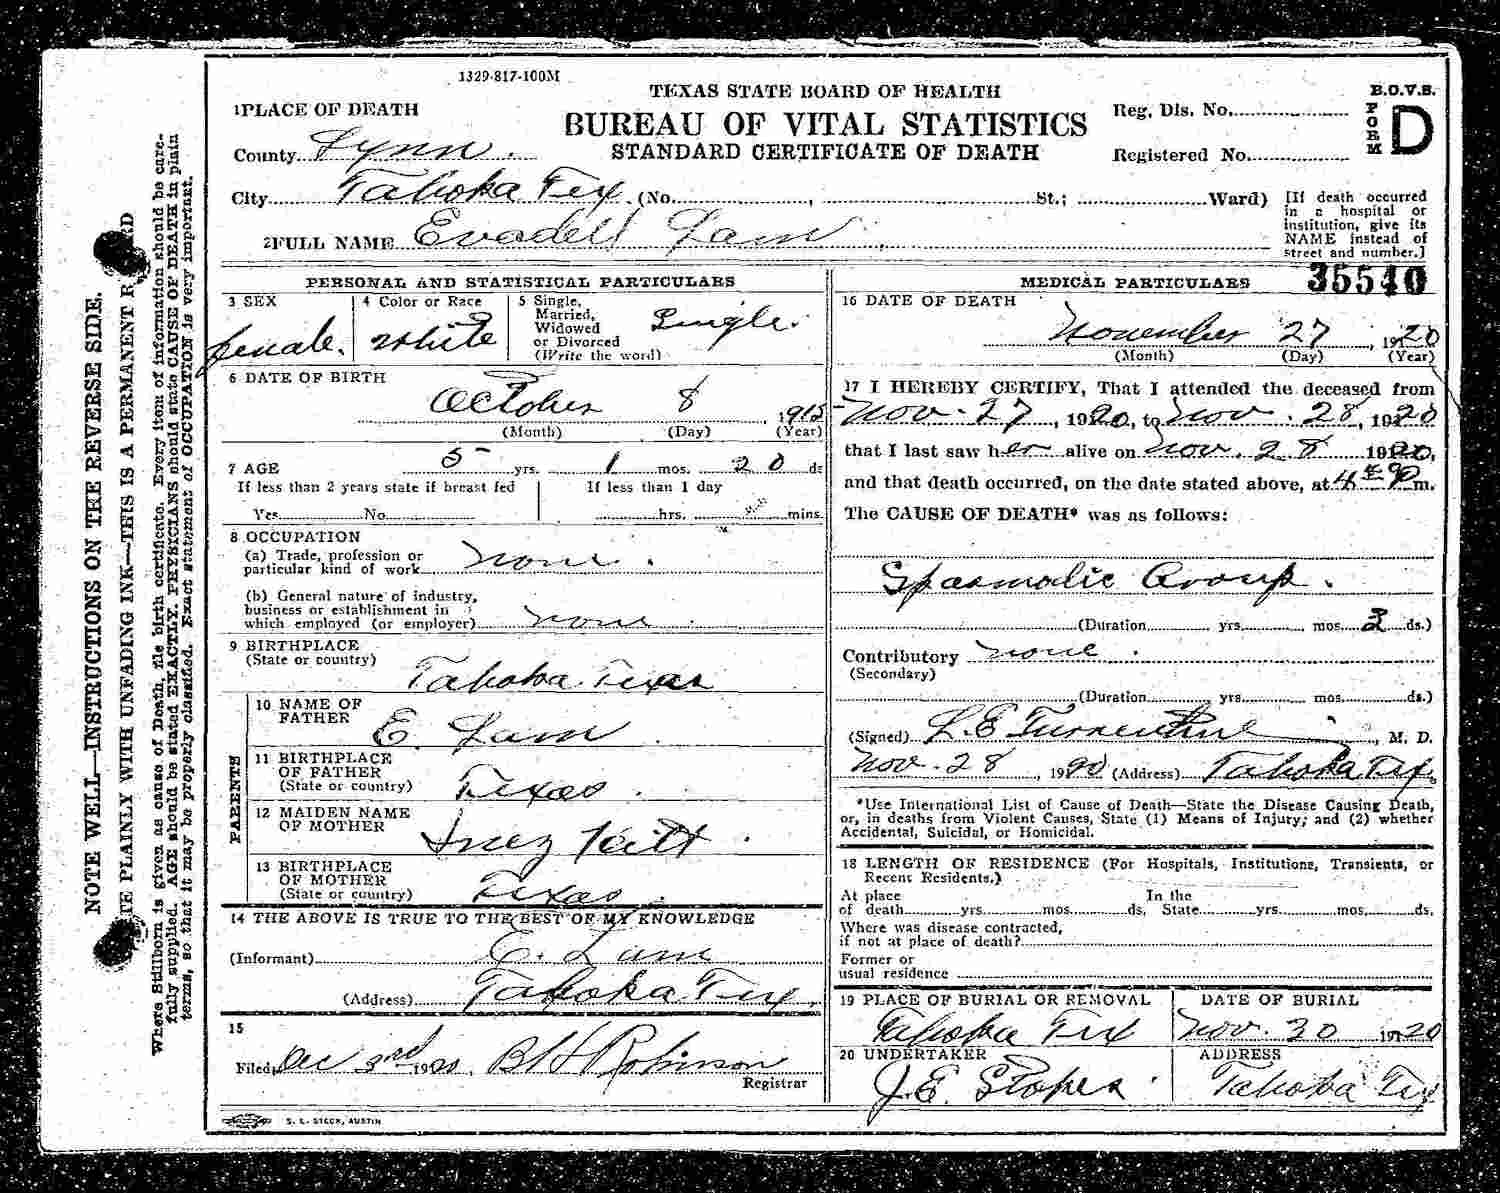 1329-817-100M
TEXAS STATE BOARD OF HEALTH
BUREAU OF VITAL STATISTICS
STANDARD CERTIFICATE OF DEATH
B.O.V.S.
FORM D
Reg. Dis. No.
Registered No.
1 PLACE OF DEATH
County Lynn.
City Tahoka Tex (No. , St.; Ward)
[If death occurred
in a hospital or
institution, give its
NAME instead of
street and number.]
2 FULL NAME Evadell Lam
35540
PERSONAL AND STATISTICAL PARTICULARS
3 SEX
female.
4 Color or Race
White
5 Single,
Married,
Widowed
or Divorced
(Write the word)
Single.
6 DATE OF BIRTH
October 8, 1915
(Month) (Day) (Year)
7 AGE 5 yrs. 1 mos. 20 ds
If less than 2 years state if breast fed
Yes No
If less than 1 day
hrs. mins.
8 OCCUPATION
(a) Trade, profession or
particular kind of work none.
(b) General nature of industry,
business or establishment in
which employed (or employer) none.
9 BIRTHPLACE
(State or country) Tahoka Texas
PARENTS
10 NAME OF
FATHER E. Lam.
11 BIRTHPLACE
OF FATHER
(State or country) Texas.
12 MAIDEN NAME
OF MOTHER Inez
13 BIRTHPLACE
OF MOTHER
(State or country) Texas.
14 THE ABOVE IS TRUE TO THE BEST OF MY KNOWLEDGE
(Informant) E. Lam
(Address) Tahoka Tex.
15
Filed Dec 3rd 1920. Robinson
Registrar
S. L. STECK, AUSTIN
MEDICAL PARTICULARS
16 DATE OF DEATH
November 27, 1920
(Month) (Day) (Year)
17 I HEREBY CERTIFY, That I attended the deceased from
Nov. 27, 1920, to Nov. 28, 1920
that I last saw her alive on Nov. 28 1920,
and that death occurred, on the date stated above, at 4 m.
The CAUSE OF DEATH* was as follows:
Spasmodic Croup.
(Duration yrs. mos. 3 ds.)
Contributory none.
(Secondary)
(Duration yrs. mos. ds.)
(Signed) L. E. Turrentine, M. D.
Nov. 28, 1920 (Address) Tahoka Tex.
*Use International List of Cause of Death—State the Disease Causing Death,
or, in deaths from Violent Causes, State (1) Means of Injury; and (2) whether
Accidental, Suicidal, or Homicidal.
18 LENGTH OF RESIDENCE (For Hospitals, Institutions, Transients, or
Recent Residents.)
At place
of death yrs. mos. ds.
In the
State yrs. mos. ds.
Where was disease contracted,
if not at place of death?
Former or
usual residence
19 PLACE OF BURIAL OR REMOVAL
Tahoka Tex
DATE OF BURIAL
Nov. 30 1920
20 UNDERTAKER
J. E. Stokes.
ADDRESS
Tahoka Tex
NOTE WELL—INSTRUCTIONS ON THE REVERSE SIDE.
PLAINLY WITH UNFADING INK—THIS IS A PERMANENT
Where Stillborn is given as cause of Death, file birth certificate. Every item of information should be care-
fully supplied. AGE should be stated EXACTLY. PHYSICIANS should state CAUSE OF DEATH in plain
terms, so that it may be properly classified. Exact statement of OCCUPATION is very important.